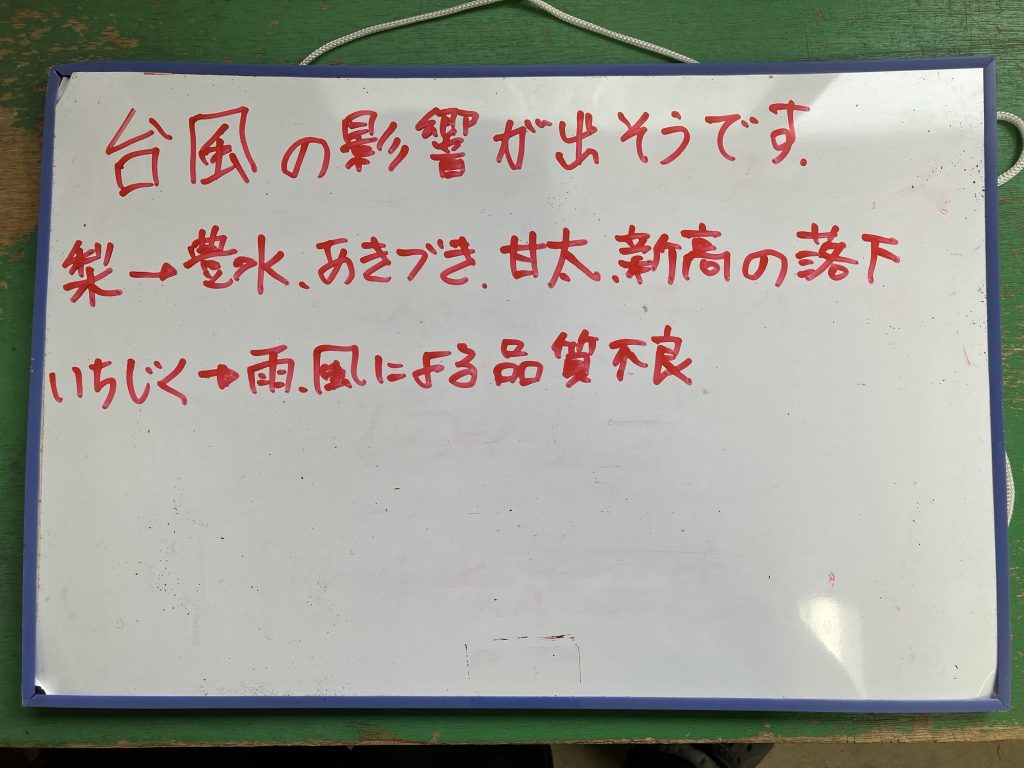 台風の影響が出そうです.
梨→豊水、あきづき、甘太、新高の落下
いちじく→雨、風による品質不良